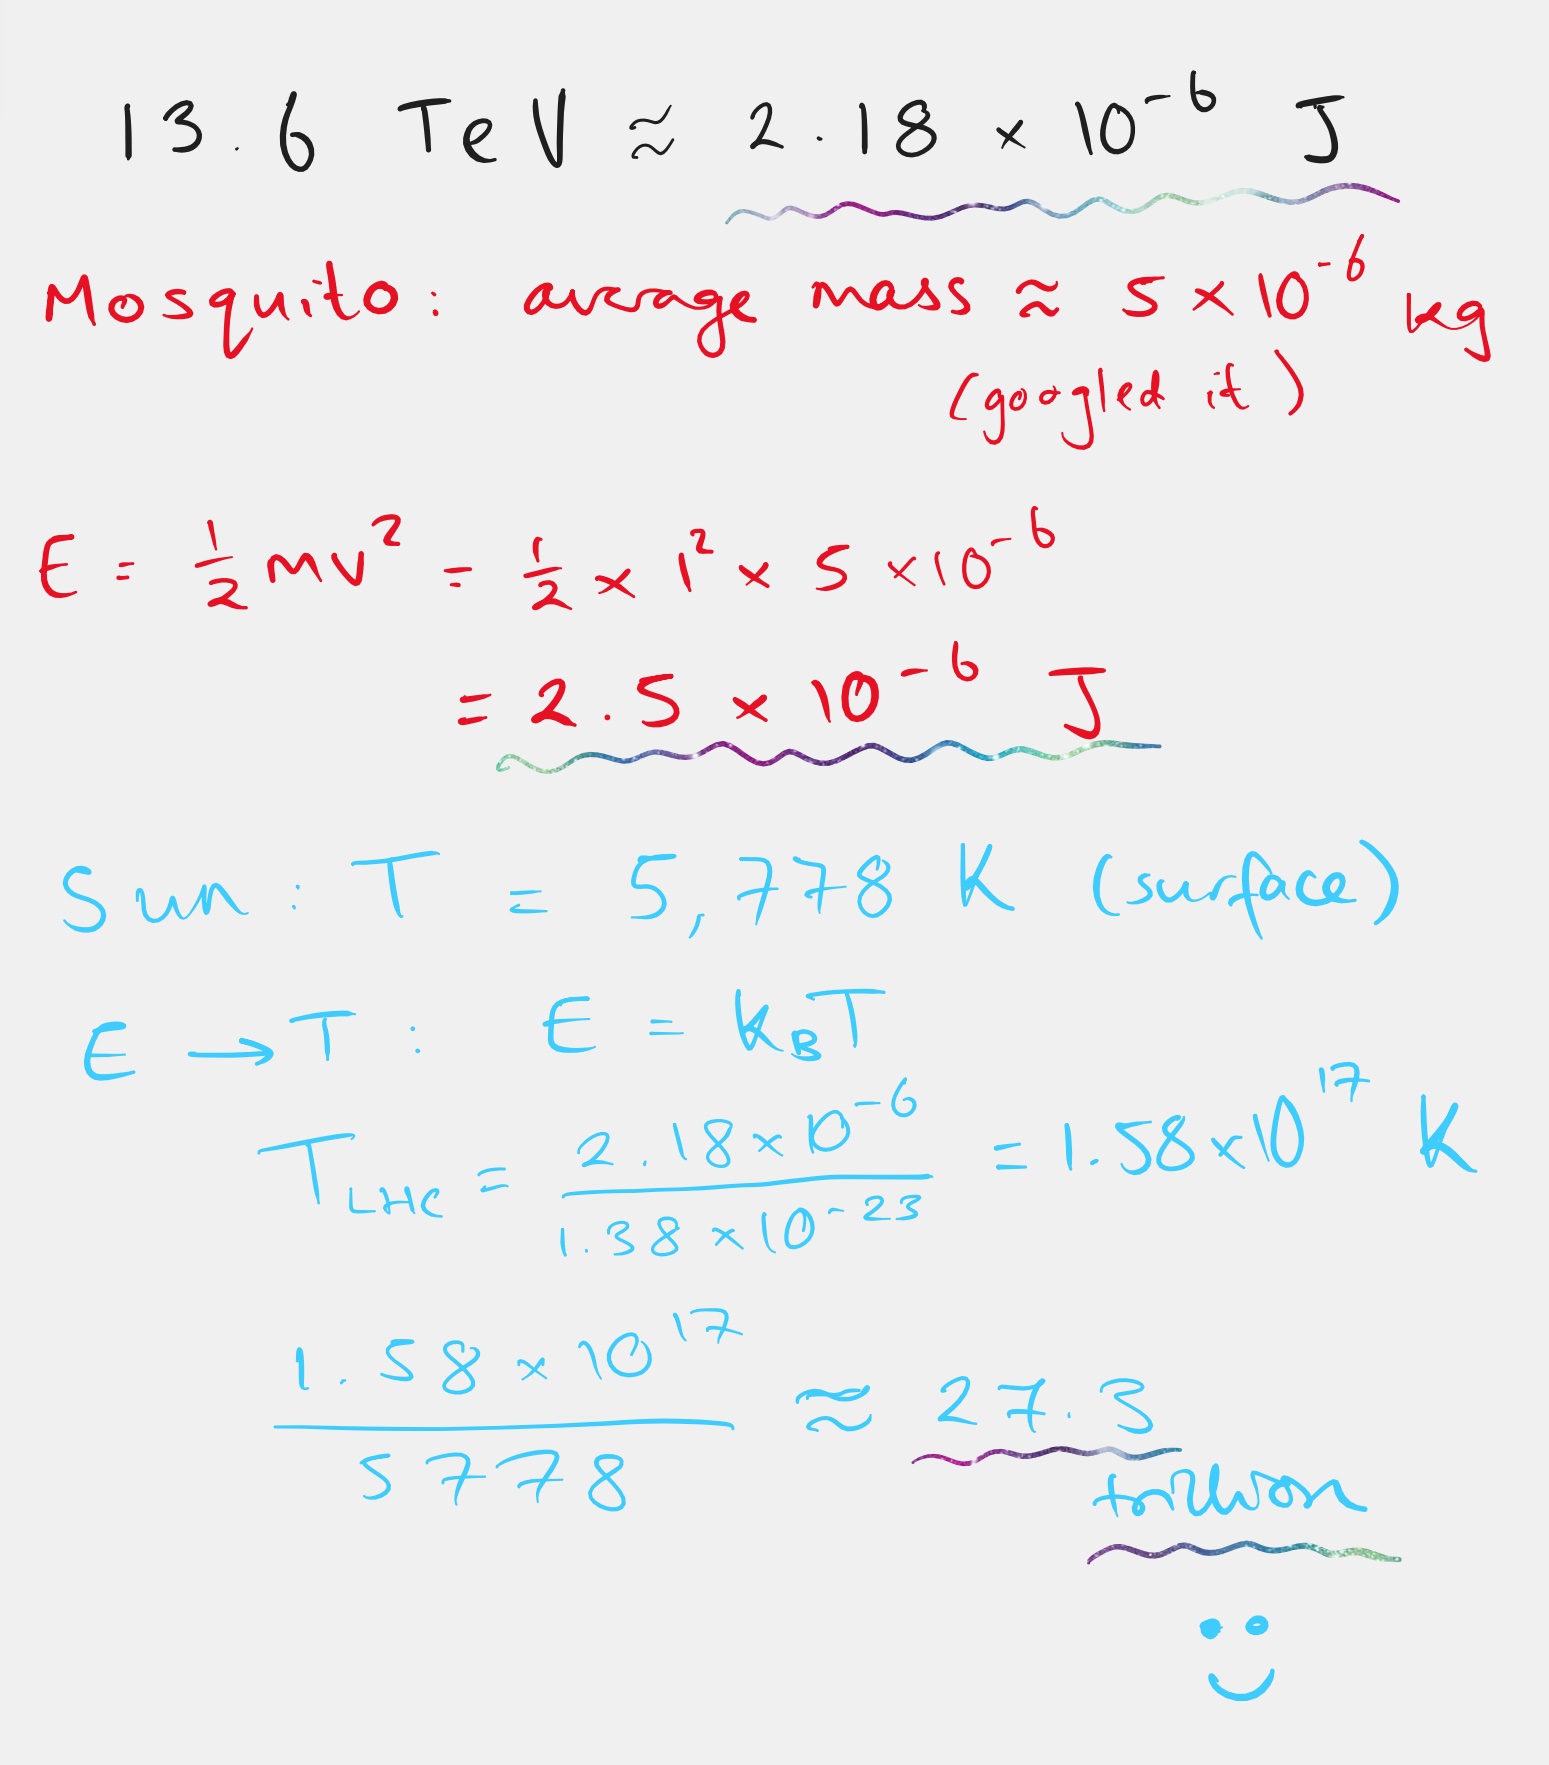 13.6 TeV ≈ 2.18 × 10⁻⁶ J
Mosquito: average mass ≈ 5 × 10⁻⁶ kg
(googled it)
E = ½ mv² = ½ × 1² × 5 × 10⁻⁶
= 2.5 × 10⁻⁶ J
Sun: T = 5,778 K (surface)
E → T: E = k_B T
T_LHC = 2.18 × 10⁻⁶ / 1.38 × 10⁻²³ = 1.58 × 10¹⁷ K
1.58 × 10¹⁷ / 5778 ≈ 27.3
trillion